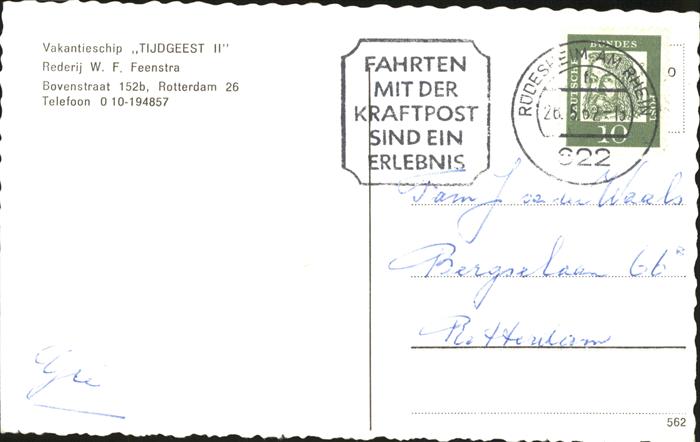 Vakantieschip „TIJDGEEST II"
Rederij W. F. Feenstra
Bovenstraat 152b, Rotterdam 26
Telefoon 0 10-194857
FAHRTEN
MIT DER
KRAFTPOST
SIND EIN
ERLEBNIS
RÜDESHEIM AM RHEIN
26.5.62
622
DEUTSCHE BUNDESPOST
10
Fam J v der Waals
Bergselaan 66
Rotterdam
562